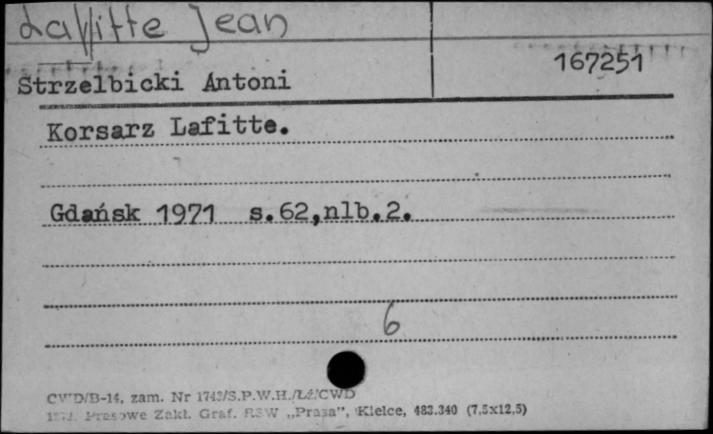 Laffitte Jean
167251
Strzelbicki Antoni
Korsarz Lafitte.
Gdańsk 1971 s.62,nlb.2.
6
CWD/B-14, zam. Nr 1743/S.P.W.H./Lż/CWD
Prasowe Zakł. Graf. RSW „Prasa”, Kielce, 483.340 (7,5x12,5)